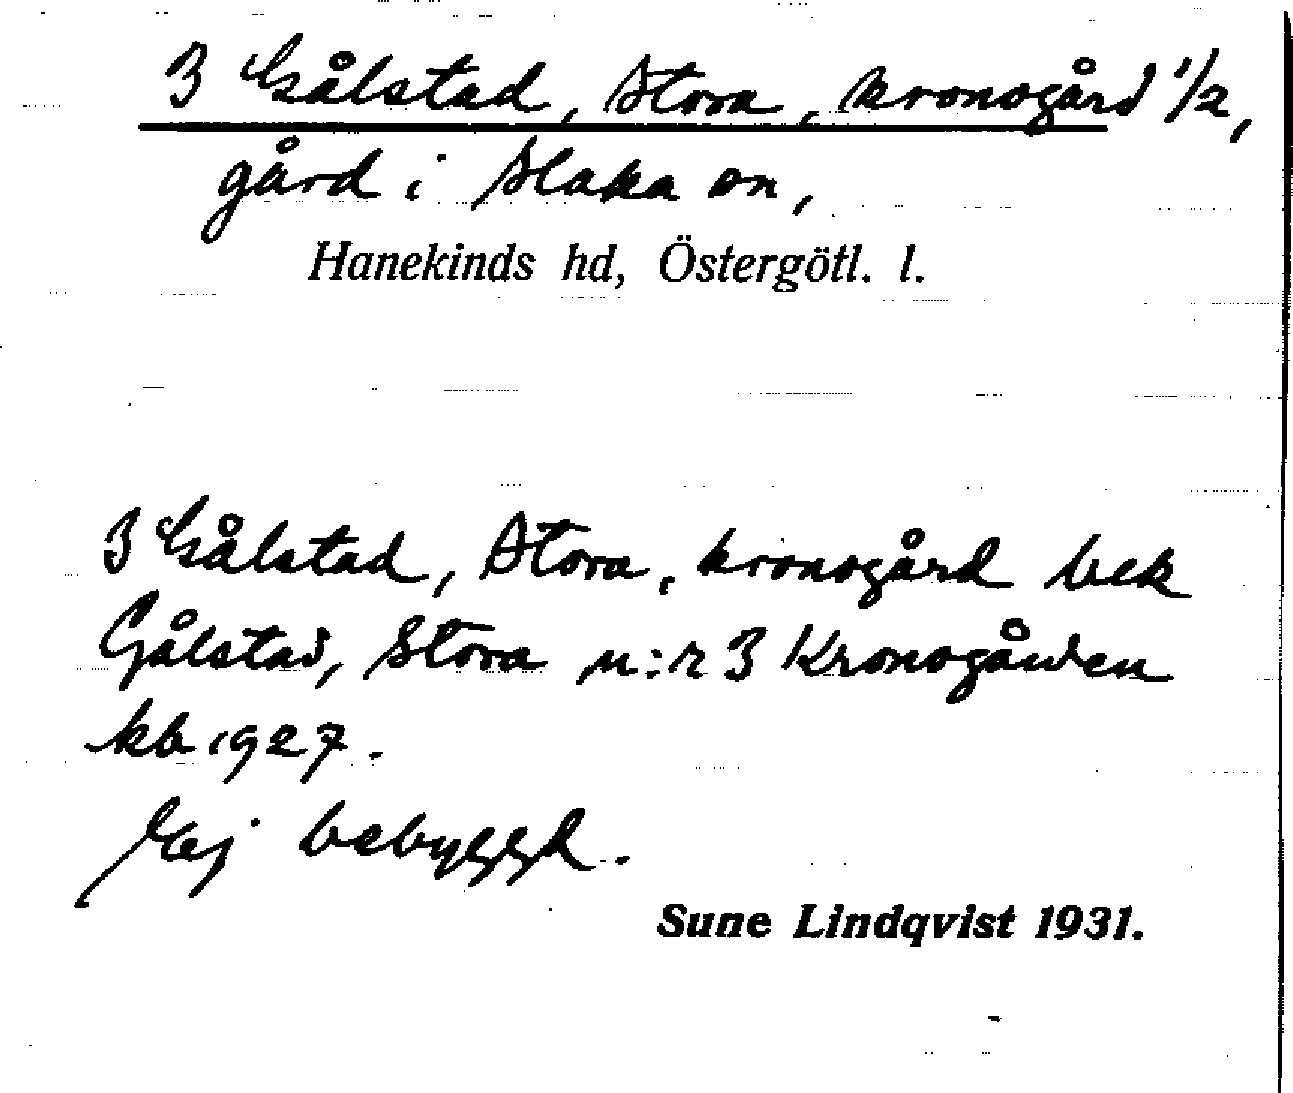 3 Gålstad, Stora, kronogård 1/2,
gård i Slaka sn,
Hanekinds hd, Östergötl. l.
3 Gålstad, Stora, kronogård bek
Gålstad, Stora n:r 3 Kronogården
kb 1927.
Ej bebyggd.
Sune Lindqvist 1931.